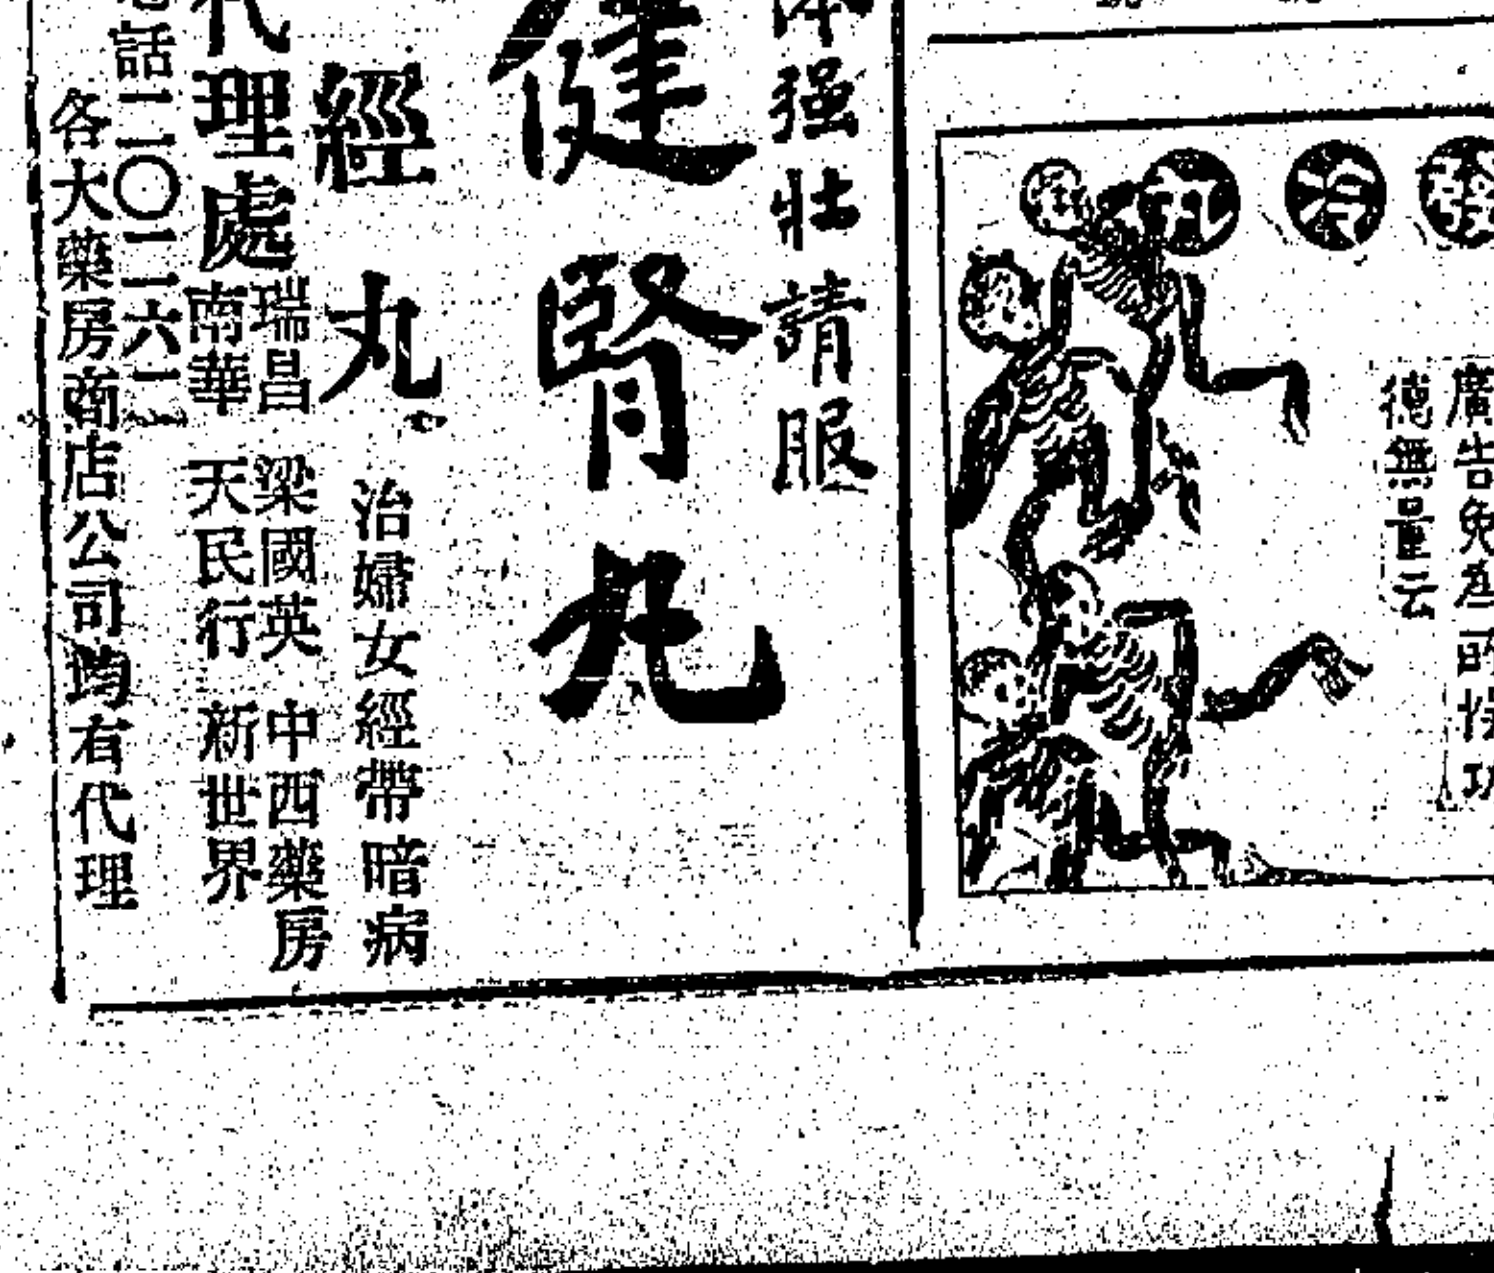 廣告免為
德無量云
体强壯請服
健腎丸
經丸。治婦女經帶暗病
代理處
瑞昌 梁國英 中西藥房
南華 天民行 新世界
話二〇二六一
各大藥房商店公司均有代理